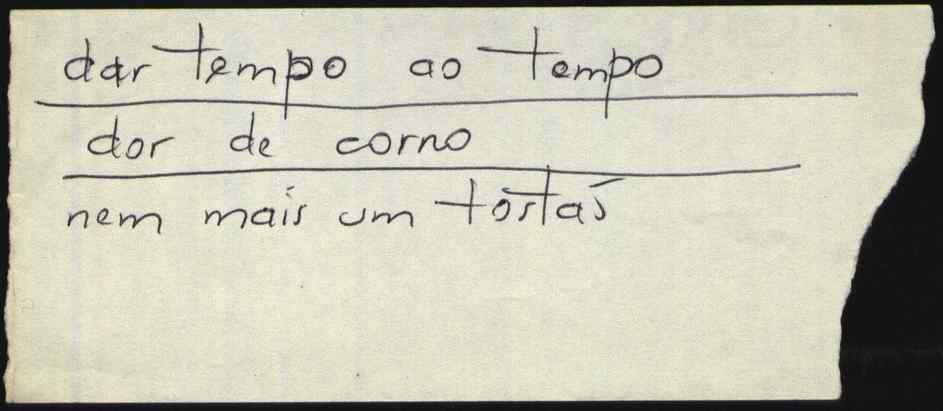 dar tempo ao tempo
dor de corno
nem mais um tostas